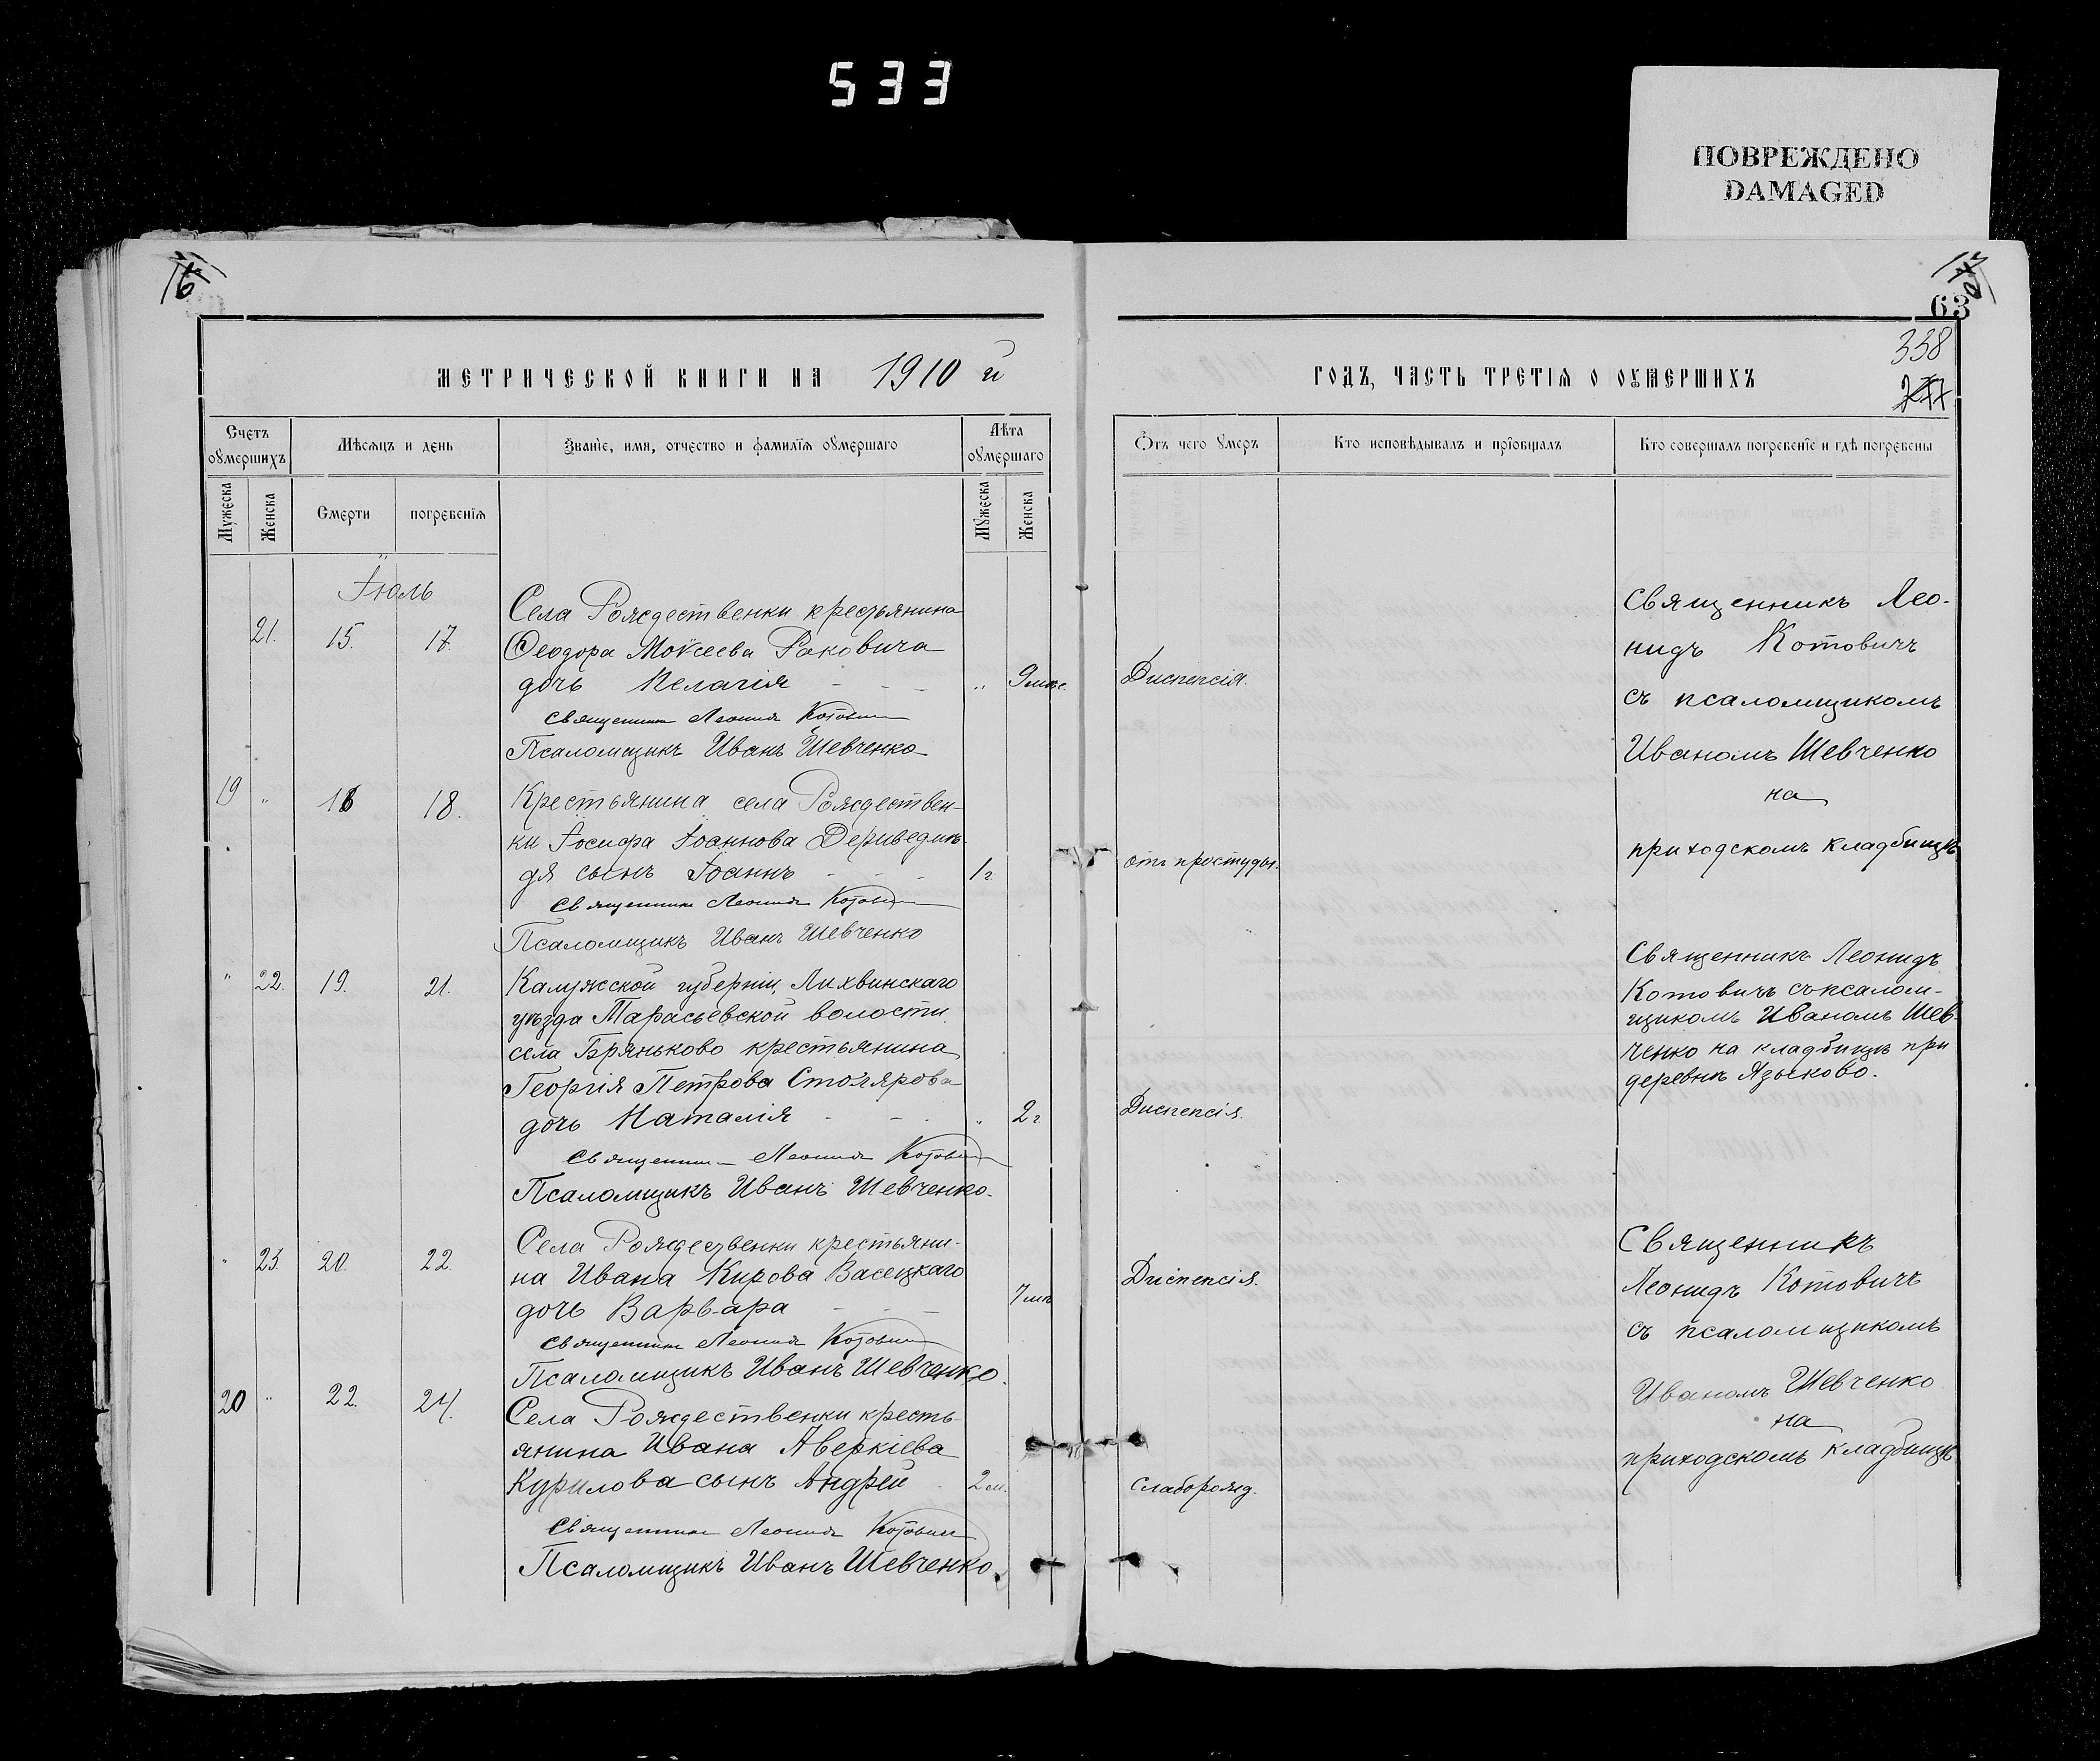 533
ПОВРЕЖДЕНО
DAMAGED
16
17
63
338
МЕТРИЧЕСКОЙ КНИГИ НА 1910 й
ГОДЪ, ЧАСТЬ ТРЕТІЯ О ОУМЕРШИХЪ
Счетъ оумершихъ
Мѣсяцъ и день
Званіе, имя, отчество и фамилія оумершаго
Лѣта оумершаго
Мужеска
Женска
Смерти
погребенія
Мужеска
Женска
Отъ чего умеръ
Кто исповѣдывалъ и пріобщалъ
Кто совершалъ погребеніе и гдѣ погребены
Іюль
21. 15. 17.
Села Рождественки крестьянина
Ѳеодора Моѵсеева Раковича
дочь Пелагія - - - „ 9 мѣс.
Священникъ Леонидъ Котовичъ
Псаломщикъ Иванъ Шевченко
Диспепсія.
Священникъ Лео-
нидъ Котовичъ
съ псаломщикомъ
Иваномъ Шевченко
на
приходскомъ кладбищѣ
19 „ 16 18.
Крестьянина села Рождествен-
ки Іосифа Іоаннова Дериведмѣ-
дя сынъ Іоаннъ - - - 1 г.
Священникъ Леонидъ Котовичъ
Псаломщикъ Иванъ Шевченко
отъ простуды.
„ 22. 19. 21.
Калужской губерніи, Лихвинскаго
уѣзда Тарасьевской волости
села Бряньково крестьянина
Георгія Петрова Столярова
дочь Наталія - - - „ 2 г.
Священникъ Леонидъ Котовичъ
Псаломщикъ Иванъ Шевченко.
Диспепсія.
Священникъ Леонидъ
Котовичъ съ псалом-
щикомъ Иваномъ Шев-
ченко на кладбищѣ при
деревнѣ Языково.
„ 23. 20. 22.
Села Рождественки крестьяни-
на Ивана Кирова Васецкаго
дочь Варвара - - - 7 мѣ
Священникъ Леонидъ Котовичъ
Псаломщикъ Иванъ Шевченко.
Диспепсія.
Священникъ
Леонидъ Котовичъ
съ псаломщикомъ
Иваномъ Шевченко
на
приходскомъ кладбищѣ
20 „ 22. 24.
Села Рождественки кресть-
янина Ивана Аверкіева
Курилова сынъ Андрей - 2 м.
Священникъ Леонидъ Котовичъ
Псаломщикъ Иванъ Шевченко.
Слаборожд.